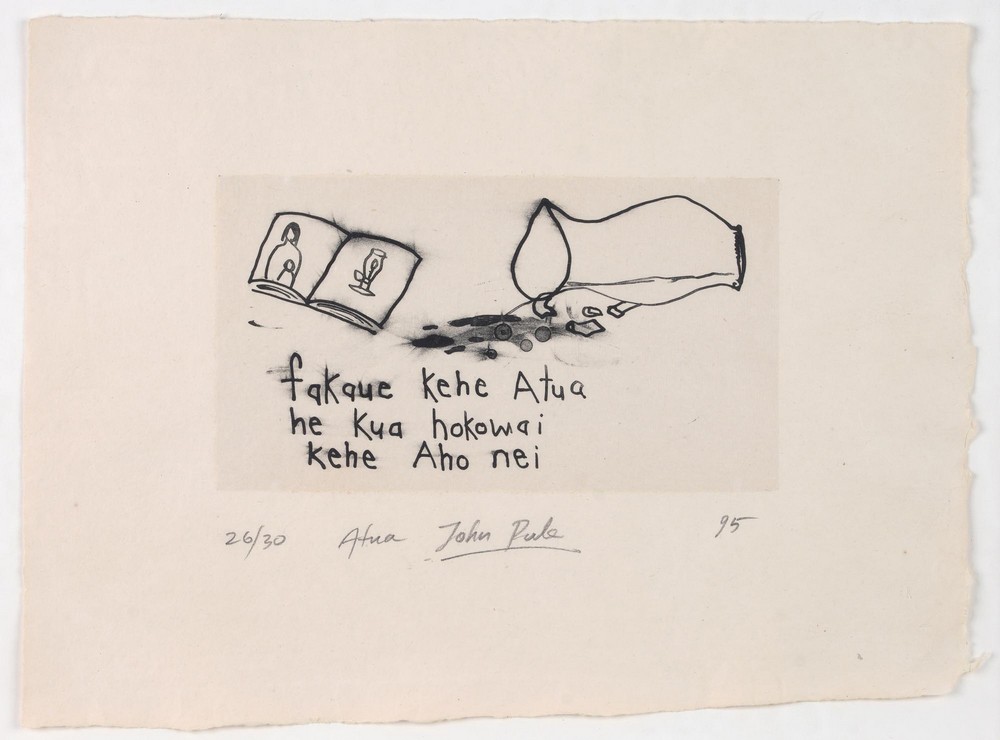 fakaue kehe Atua
he kua hokowai
kehe Aho nei
26/30 Atua John Pule 95